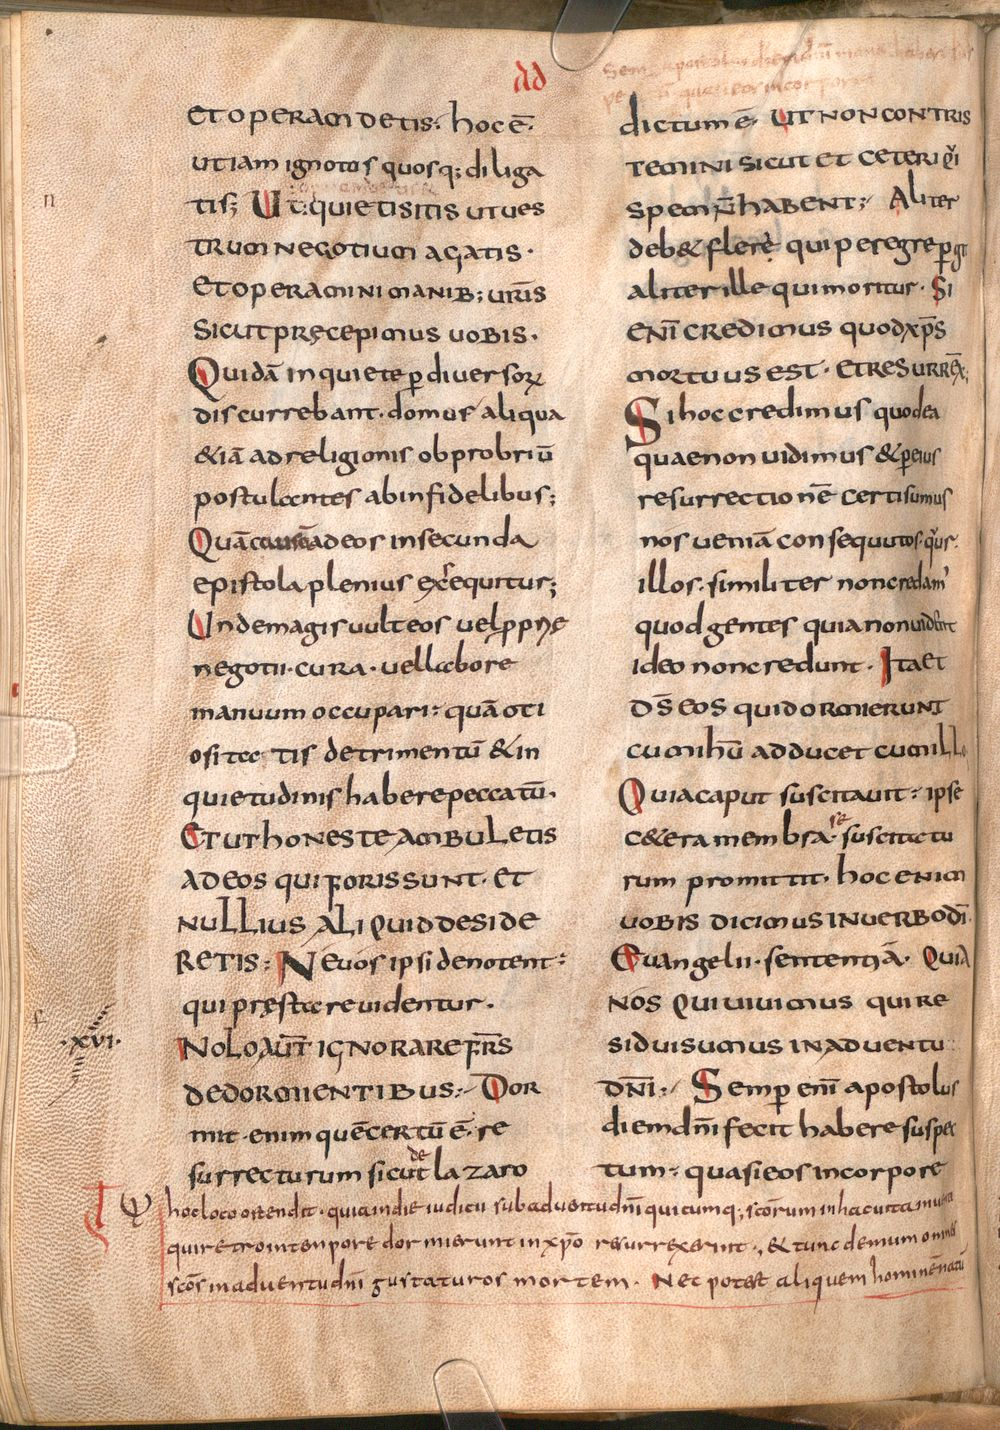 ad
ET OPERAM DETIS. hoc ē.
utiam ignotos quosq; diliga
tis; UT QUIETI SITIS UT UES
TRUM NEGOTIUM AGATIS.
ET OPEREMINI MANIB; URĪS
SICUT PRĘCEPIMUS UOBIS.
Quidā inquiete ꝑ diuersoꝝ
discurrebant. domus aliqua
&iā ad religionis obprobriū
postulantes ab infidelibus;
Quā ad eos in secunda
epistola plenius exequitur;
Unde magis uult eos uel ꝓprie
negotii. cura. uel labore
manuum occupari: quā oti
ositatis detrimentū & in
quietudinis habere peccatū.
ET UT HONESTE AMBULETIS
AD EOS QUI FORIS SUNT. ET
NULLIUS ALIQUID DESIDE
RETIS: Ne uos ipsi denotent:
qui pręstare uidentur.
n
.XVI.
NOLO AUT̄ IGNORARE FR̄S
DE DORMIENTIBUS: Dor
mit. enim quē certū ē. re
surrecturum sicut de lazaro
dictum ē. UT NON CONTRIS
TEMINI SICUT ET CETERI Q̄I
SPEM N̄ HABENT; Aliter
deb& flere qui peregre ꝑgit
aliter ille qui moritur. SI
ENĪ CREDIMUS QUOD XP̄S
MORTUUS EST. ET RESURRĒX;
Si hoc credimus quod ea
quae non uidimus & ꝑ eius
resurrectionē certi sumus
nos ueniā consequutos
illos. similiter non credam'
quod gentes quia non uider̄t
ideo non credunt. ITA ET
D̄S EOS QUI DORMIERUNT
CUM IHŪ ADDUCET CUM ILLO
Quia caput suscitauit: ipse
c&era membra. se suscitatu
rum promittit. HOC ENIM
UOBIS DICIMUS IN UERBO DN̄I.
Euangelii. sententia. QUIA
NOS QUI UIUIMUS QUI RE
SIDUI SUMUS IN ADUENTU
DN̄I: Semꝑ enī apostolus
diem dn̄i fecit habere suspec
tum: quasi eos in corpore
hoc loco ostendit. quia in die iudicii sub aduentu dn̄i quicumq; sc̄orum in hac uita
qui retro in tempore dormierunt in xp̄o resurrexerint., & tunc demum omnes
sc̄os in aduentu dn̄i gustaturos mortem. Nec potest aliquem hominē